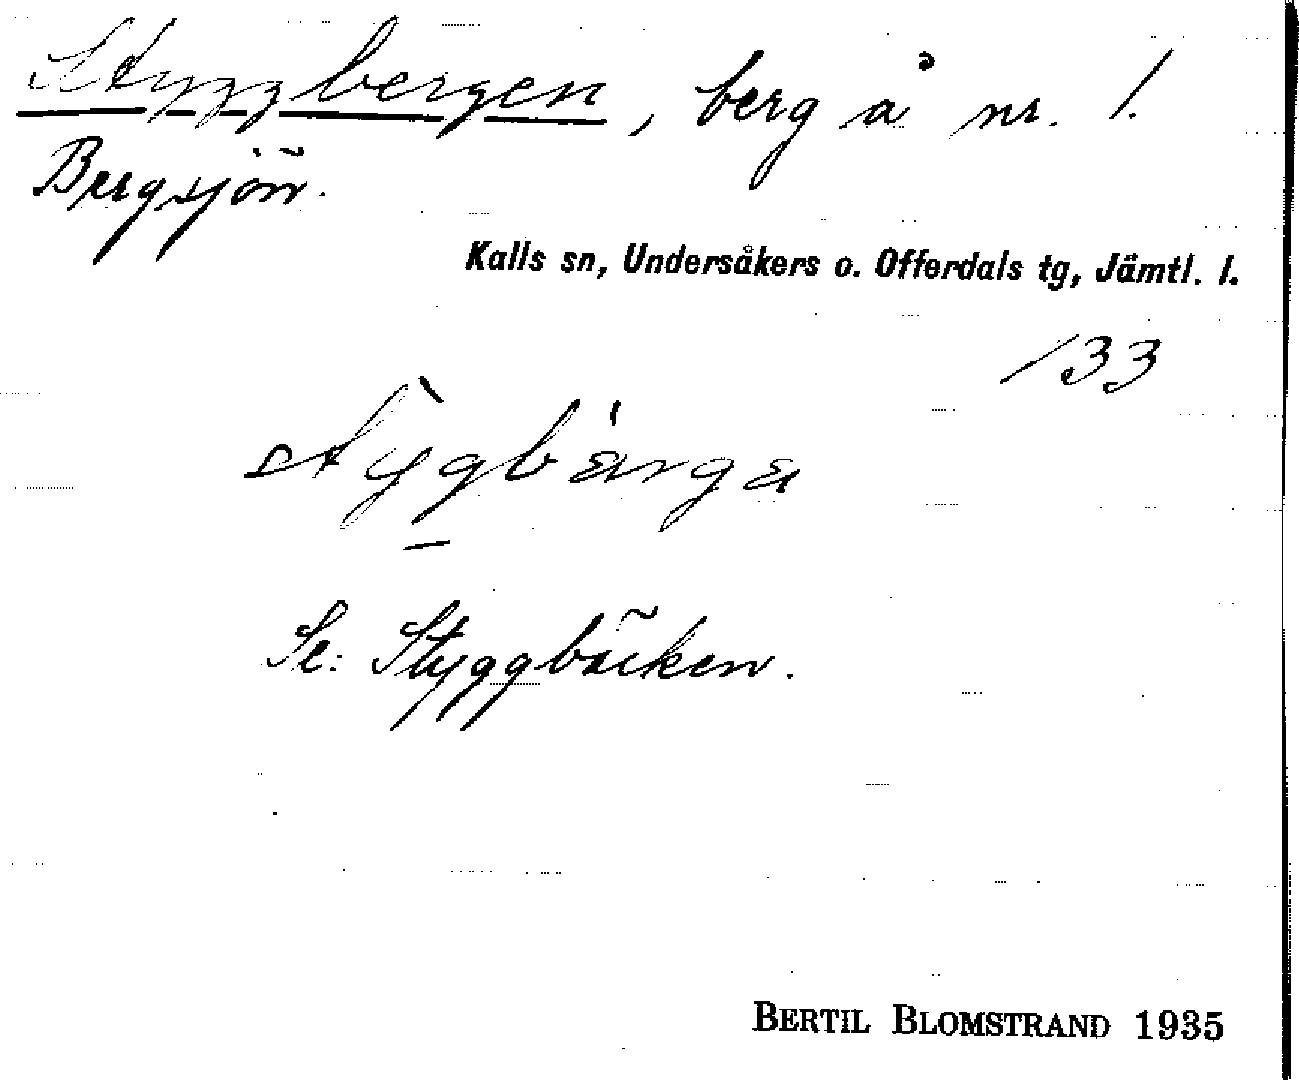 Styggbergen, berg å nr. 1.
Bergsjön.
Kalls sn, Undersåkers o. Offerdals tg, Jämtl. l.
133
stỳgbárga
Se: Styggbäcken.
BERTIL BLOMSTRAND 1935